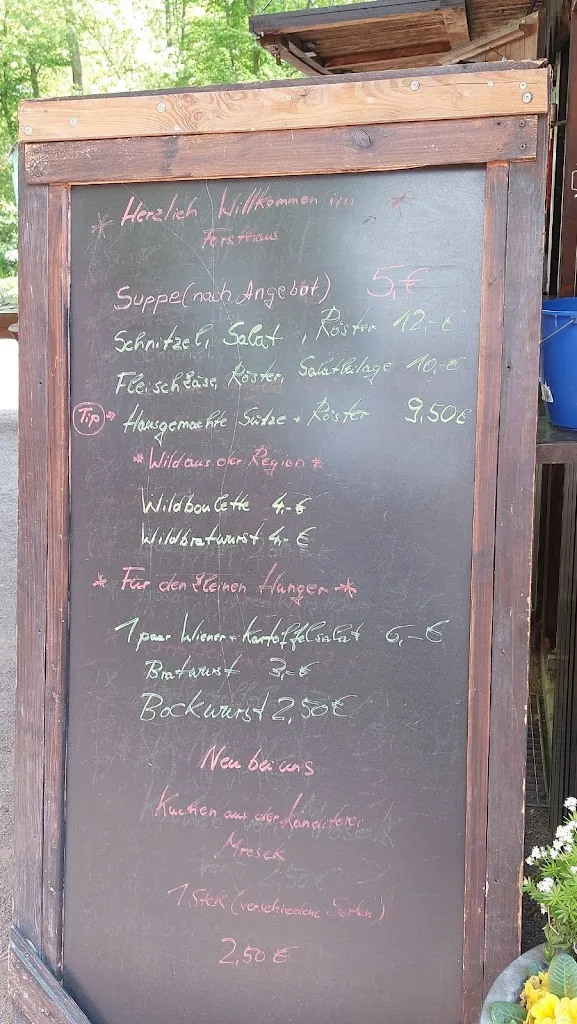 * Herzlich Willkommen im *
Forsthaus
Suppe (nach Angebot) 5,€
Schnitzel, Salat, Röster 12,-€
Fleischkäse, Röster, Salatbeilage 10,-€
Tip → Hausgemachte Sülze + Röster 9,50€
* Wild aus der Region *
Wildboulette 4,-€
Wildbratwurst 4,-€
* Für den kleinen Hunger *
1 paar Wiener + Kartoffelsalat 6,-€
Bratwurst 3,-€
Bockwurst 2,50€
Neu bei uns
Kuchen aus der Konditorei
Mrosek
1 Stck (verschiedene Sorten)
2,50€